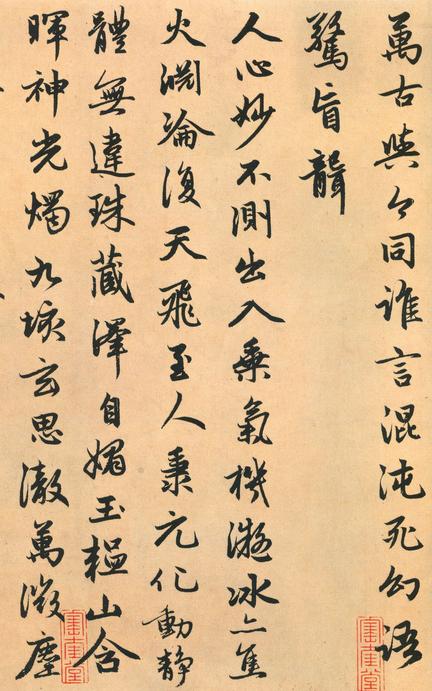 萬古與今同誰言混沌死幻語
驚盲聾
人心妙不測出入乘氣機凝冰亦焦
火淵淪復天飛至人秉元化動靜
體無違珠藏澤自媚玉韞山含
暉神光燭九垓玄思徹萬微塵